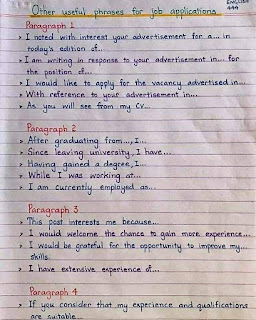 ENGLISH
444
Other useful phrases for job applications
Paragraph 1
> I noted with interest your advertisement for a... in
today's edition of..
> I am writing in response to your advertisement in... for
the position of...
> I would like to apply for the vacancy advertised in...
> With reference to your advertisement in...
> As you will see from my CV...
Paragraph 2
> After graduating from..., I...
> Since leaving university, I have...
> Having gained a degree, I...
> While I was working at...
> I am currently employed as...
Paragraph 3
> This post interests me because...
> I would welcome the chance to gain more experience...
> I would be grateful for the opportunity to improve my...
skills.
> I have extensive experience of...
Paragraph 4
> If you consider that my experience and qualifications
are suitable...